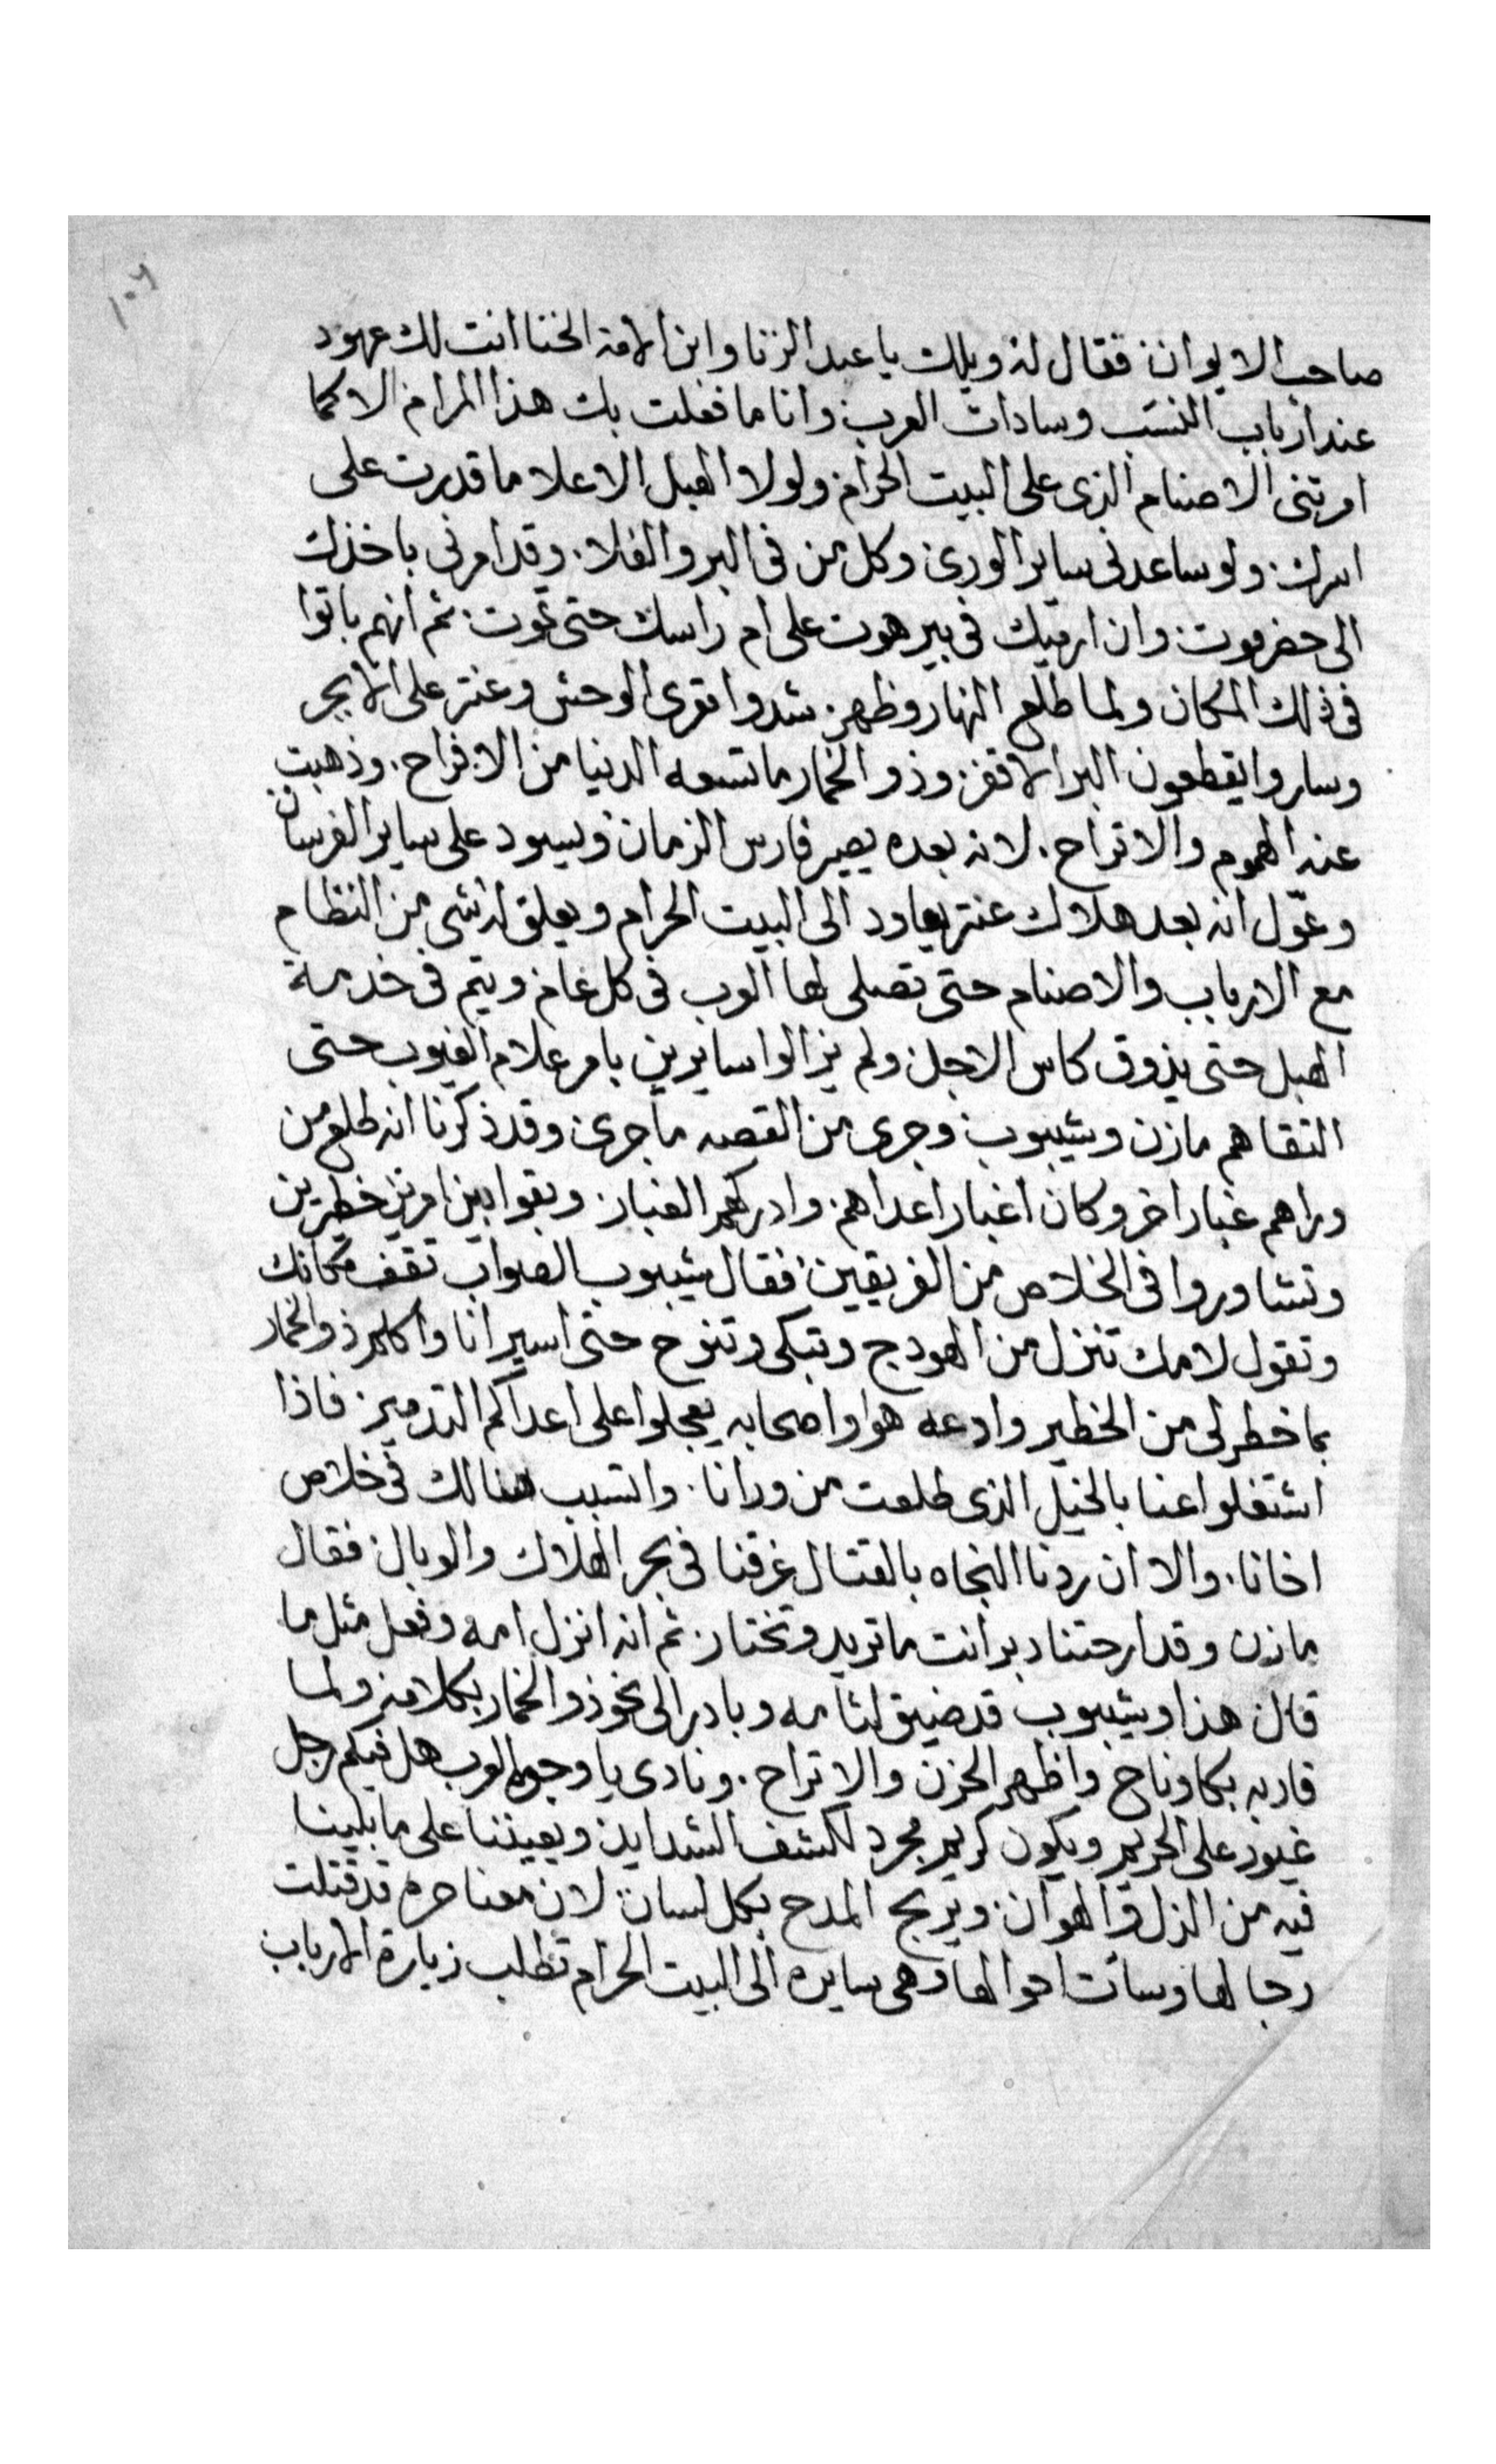 ١٠٦
صاحب الايوان فقال له ويلك يا عبد الزنا وابن الامة الخنا انت لك عهود
عند ارباب النسب وسادات العرب وانا ما فعلت بك هذا المرام الا كما
امرتنى الاصنام الذى على البيت الحرام ولولا الهبل الاعلا ما قدرت على
اسرك ولو ساعدنى ساير الورى وكل من فى البر والفلا وقد امرنى باخذك
الى حضرموت وان ارميك فى بير هوت على ام راسك حتى تموت ثم انهم باتوا
فى ذلك المكان ولما طلع النهار وظهر شدوا مقرى الوحش وعنتر على الابجر
وساروا يقطعون البر الاقفر وذو الخمار ما تسعه الدنيا من الافراح وذهبت
عنه الهموم والاتراح لانه بعده يصير فارس الزمان ويسود على ساير الفرسان
وعوّل انه بعد هلاك عنتر يعاود الى البيت الحرام ويعلق له شى من النظام
مع الارباب والاصنام حتى تصلى لها العرب فى كل عام ويتم فى خدمة
الهبل حتى يذوق كاس الاجل ولم يزالوا سايرين بامر علام الغيوب حتى
التقاهم مازن وشيبوب وجرى من القصه ما جرى وقد ذكرنا انه طلع من
وراهم غبار اخر وكان اغبار اعداهم وادركهم الغبار وبقوا بين امرين خطرين
وتشاوروا فى الخلاص من الفريقين فقال شيبوب الصواب تقف مكانك
وتقول لامك تنزل من الهودج وتبكى وتنوح حتى اسير انا واكلم ذو الخمار
بما خطر لى من الخطير وادعه هو واصحابه يعجلوا على اعداكم التدمير فاذا
اشتغلوا عنا بالخيل الذى طلعت من ورانا واتسبب هنالك فى خلاص
اخانا والا ان ردنا النجاه بالقتال غرقنا فى بحر الهلاك والوبال فقال
مازن وقد ارحتنا دبر انت ما تريد وتختار ثم انه انزل امه وفعل مثل ما
قال هذا وشيبوب قد ضيق لثامه وبادر الى نحو ذو الخمار بكلامه ولما
قاربه بكا وناح واظهر الحزن والاتراح ونادى يا وجوه العرب هل فيكم رجل
غيور على الحريم ويكون كريم مجرد لكشف الشدايد ويعيننا على ما بلينا
فيه من الذل والهوان ويربح المدح بكل لسان لان معنا حرم قد قتلت
رجالها وسات احوالها وهى سايره الى البيت الحرام تطلب زيارة الارباب